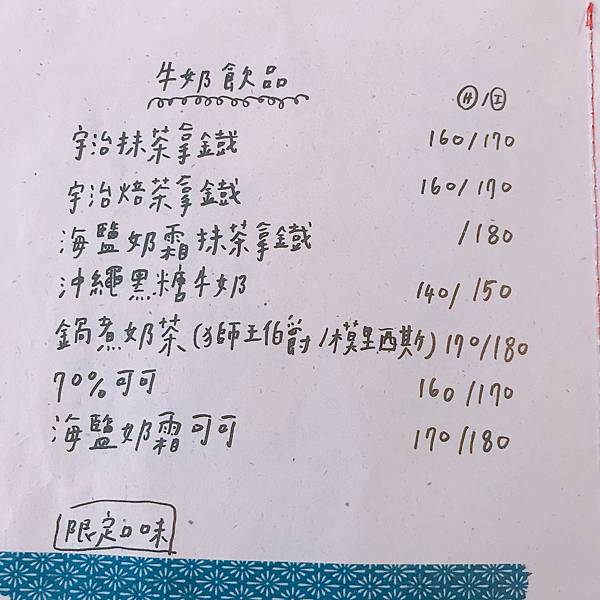 牛奶飲品
Ⓗ/Ⓘ
宇治抹茶拿鐵 160/170
宇治焙茶拿鐵 160/170
海鹽奶霜抹茶拿鐵 /180
沖繩黑糖牛奶 140/150
鍋煮奶茶(獅王伯爵/模里西斯) 170/180
70%可可 160/170
海鹽奶霜可可 170/180
限定口味